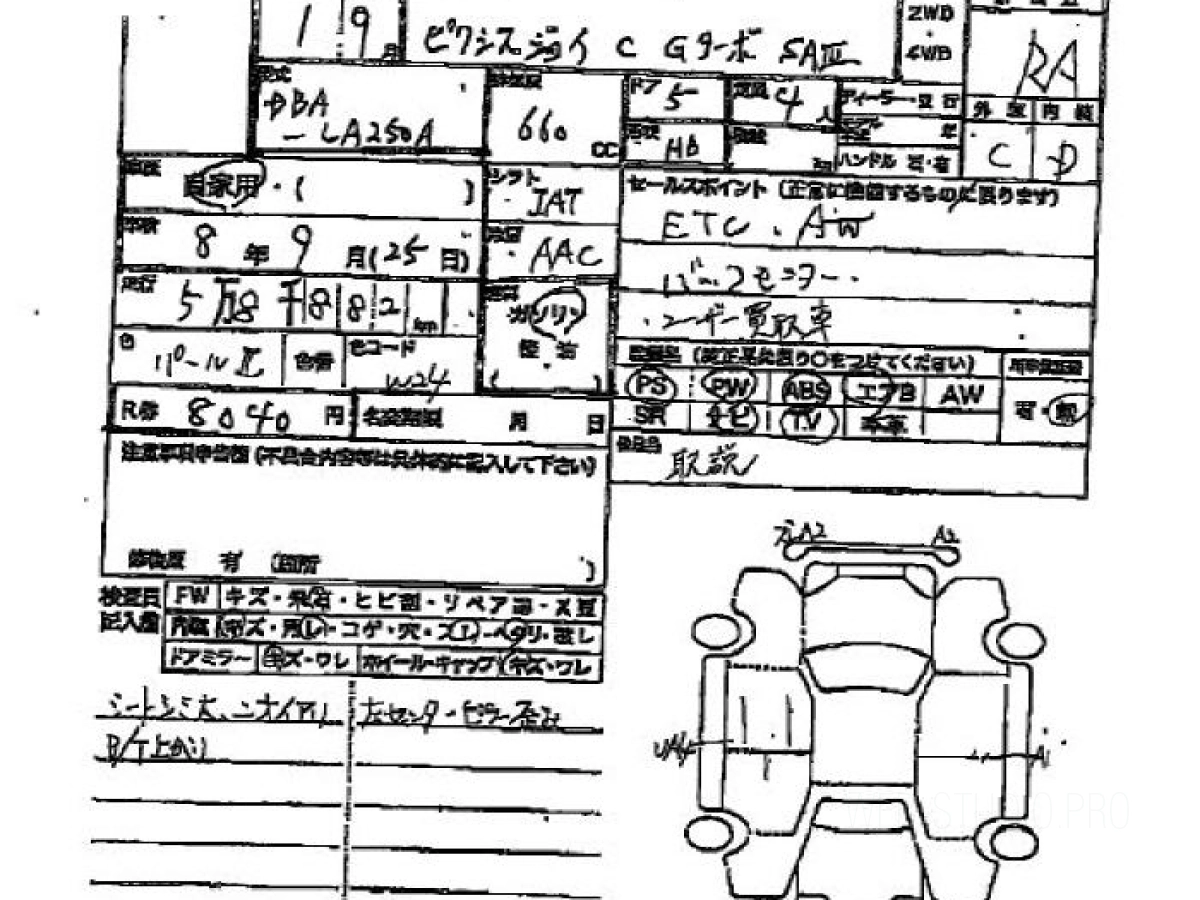 1 9月 ピクシスジョイ C Gターボ SAⅢ
2WD
4WD
RA
型式 DBA
-LA250A
660 CC
ドア 5
定員 4人
形状 HB
ディーラー
年
ハンドル 右・左
外装 内装
C D
自家用・( )
シフト IAT
セールスポイント (正常に機能するものに限ります)
ETC. AW
車検 8年9月(25日)
冷房 AAC
バックモニター
走行 5万8千882 km
ガソリン
軽油
ユーザー買取車
色 パールⅡ 色番 色コード W24
装備品 (純正品に限り○をつけてください)
PS PW ABS エアB AW
SR ナビ TV 本革
R券 8040円
名変期限 月 日
取説
注意事項申告欄 (不具合内容等は具体的に記入して下さい)
修復歴 有 (箇所 )
元A2 A2
検査員
記入欄
FW キズ・飛石・ヒビ割・リペア
内装 キズ・汚レ・コゲ・穴・スレ・ヘタリ
ドアミラー キズ・ワレ ホイールキャップ キズ・ワレ
シートシミ大、ニオイアリ 左センターピラー歪み
UA4 A1